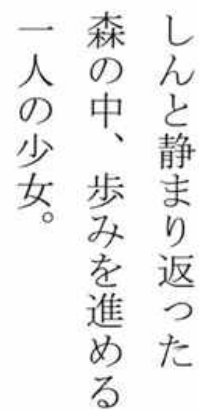 しんと静まり返った
森の中、歩みを進める
一人の少女。